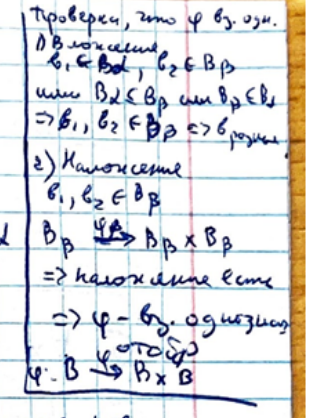 Проверки, что φ вз. одн.
1) Вложение
b₁ ∈ Bα, b₂ ∈ Bβ
или Bα ⊆ Bβ или Bβ ⊆ Bα
=> b₁, b₂ ∈ Bβ => в разные
2) Наложение
b₁, b₂ ∈ Bβ
Bβ φβ→ Bβ × Bβ
=> наложение есть
=> φ - вз. однозначн
отобр
φ: B φ→ B × B